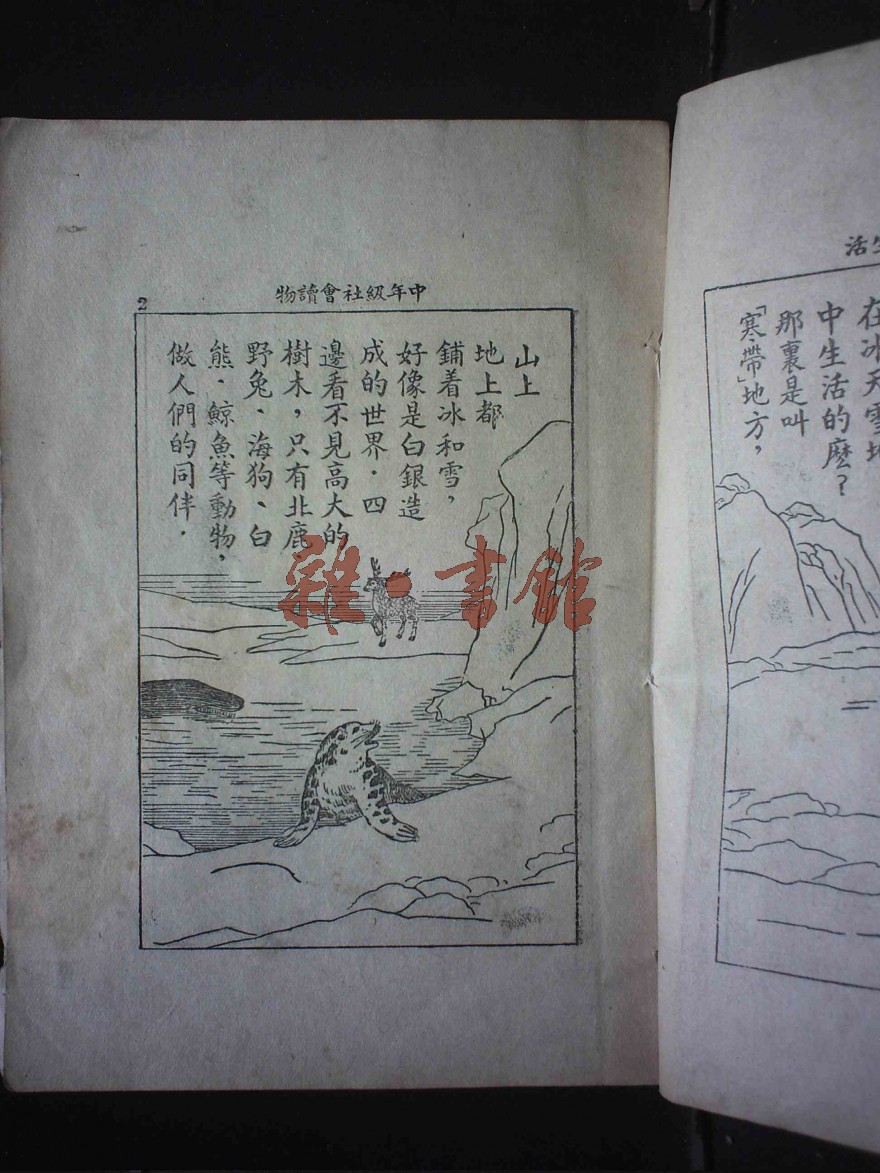 活
在冰天雪地
中生活的麽？
那裏是叫
「寒帶」地方，
中年級社會讀物
2
山上
地上都
鋪着冰和雪，
好像是白銀造
成的世界．四
邊看不見高大的
樹木，只有北鹿、
野兔、海狗、白
熊．鯨魚等動物，
做人們的同伴．
雜·書館